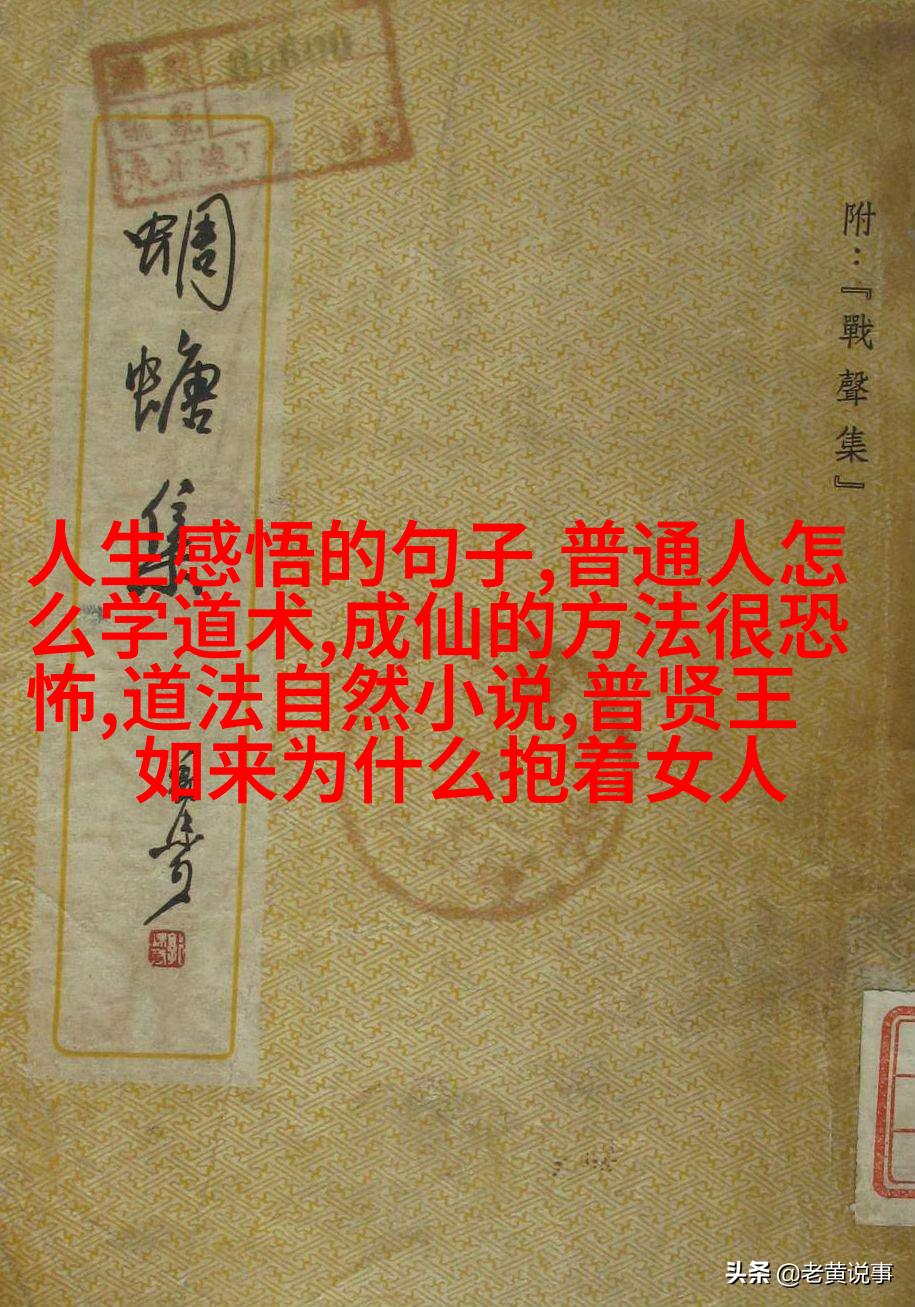 蜩螗集
附：『戰聲集』
人生感悟的句子,普通人怎
么学道术,成仙的方法很恐
怖,道法自然小说,普贤王
如来为什么抱着女人
头条 @老黄说事